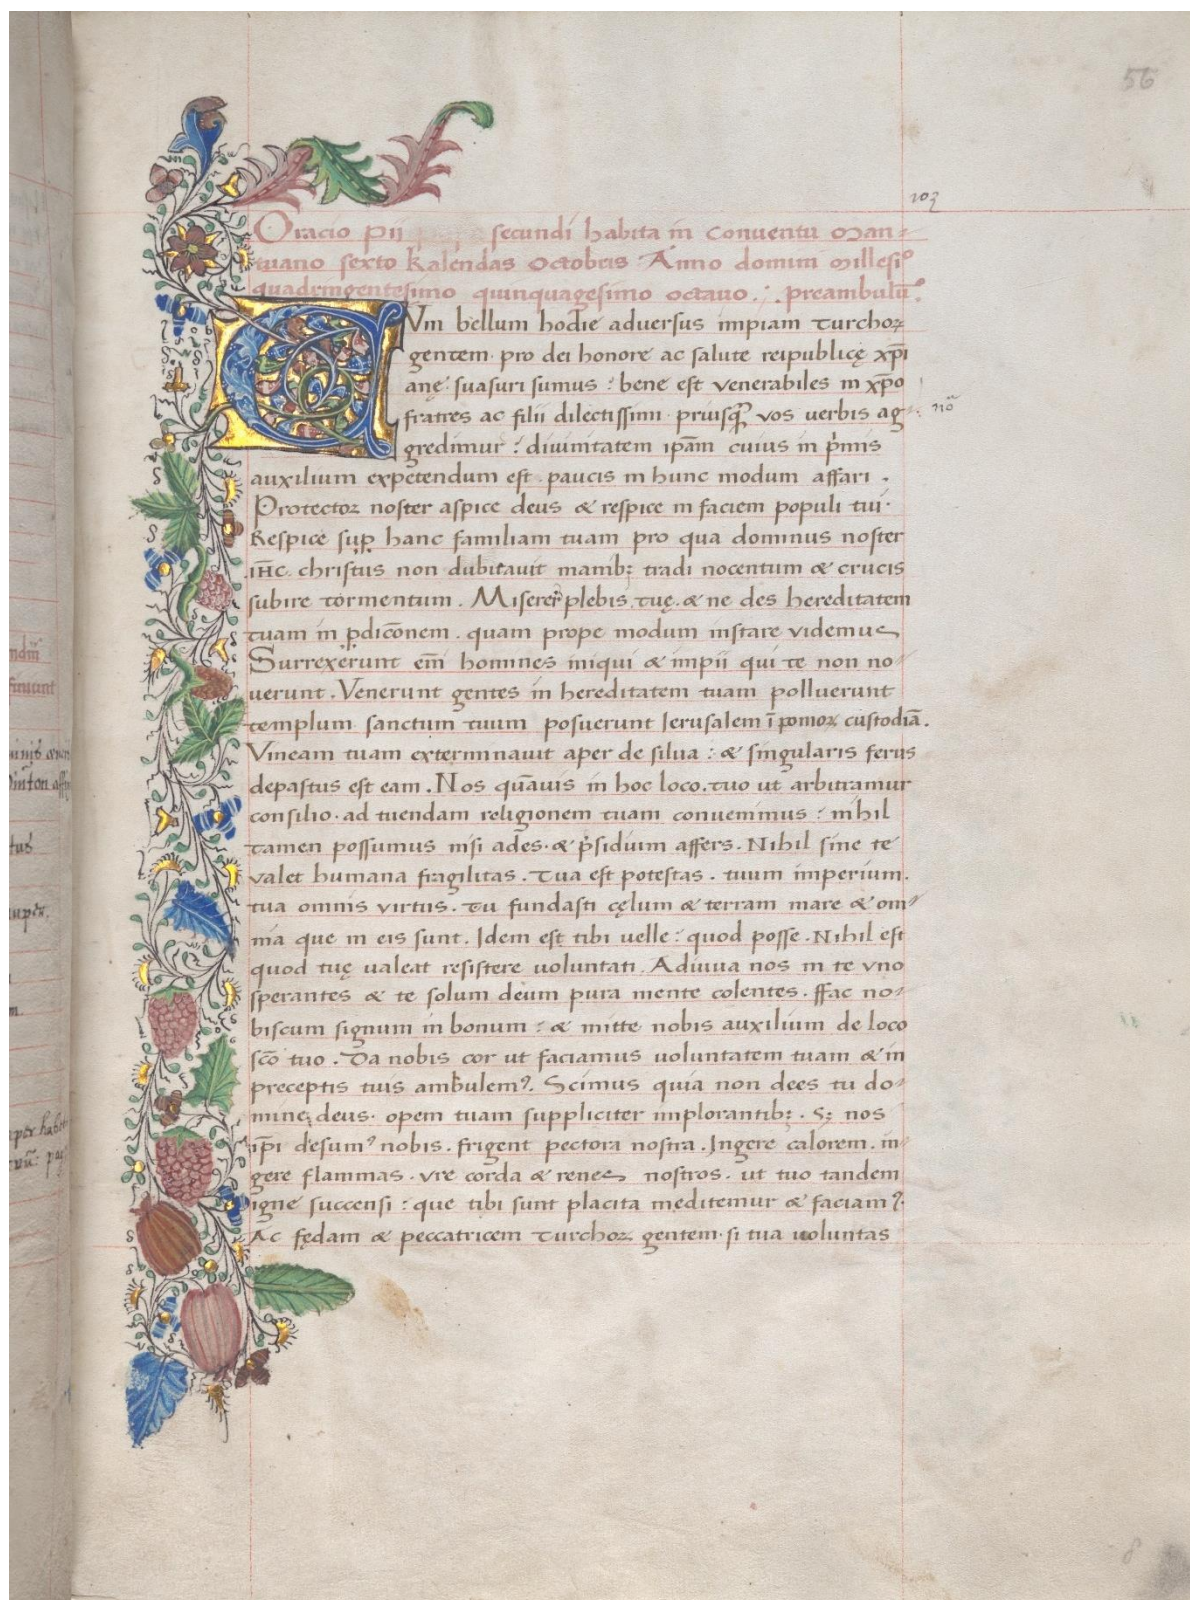 56
103
Oracio pii secundi habita in conventu Man-
tuano sexto kalendas Octobris Anno domini Millesiº
quadringentesimo quinquagesimo octavo .;. preambulū.
CVm bellum hodie adversus impiam turchoꝝ
gentem · pro dei honore ac salute reipublicę xp̄i
anę suasuri sumus : bene est venerabiles in xp̄o
fratres ac filii dilectissimi · priusꝙ̄ vos verbis ag-
nō
gredimur : divinitatem ip̄am cuius in p̓mis
auxilium expetendum est · paucis in hunc modum affari .
Protector noster aspice deus & respice in faciem populi tui ·
Respice suꝑ hanc familiam tuam pro qua dominus noster
iħc christus non dubitavit manibꝫ tradi nocentum & crucis
subire tormentum . Miserere plebis tuę · & ne des hereditatem
tuam in ꝑdicōnem . quam prope modum instare videmus
Surrexerunt em̄ homines iniqui & impii qui te non no-
verunt . Venerunt gentes in hereditatem tuam polluerunt
templum sanctum tuum posuerunt Ierusalem ī pomoꝝ custodiā .
Vineam tuam exterminavit aper de silva : & singularis ferus
depastus est eam . Nos qūavis in hoc loco · tuo ut arbitramur
consilio · ad tuendam religionem tuam convenimus : nihil
tamen possumus nisi ades · & p̓sidium affers . Nihil sine te
valet humana fragilitas . Tua est potestas . tuum imperium .
tua omnis virtus . Tu fundasti cęlum & terram mare & om-
nia que in eis sunt . Idem est tibi uelle : quod posse . Nihil est
quod tuę ualeat resistere uoluntati . Adiuua nos in te vno
sperantes & te solum deum pura mente colentes . ffac no-
biscum signum in bonum : & mitte nobis auxilium de loco
scō tuo . Da nobis cor ut faciamus uoluntatem tuam & in
preceptis tuis ambulemꝰ . Scimus quia non dees tu do-
mine deus · opem tuam suppliciter implorantibꝫ . Sꝫ nos
ip̄i desumꝰ nobis . frigent pectora nostra . Ingere calorem . in-
gere flammas . vre corda & renes nostros . ut tuo tandem
igne succensi : que tibi sunt placita meditemur & faciamꝰ .
Ac fędam & peccatricem turchoꝝ gentem · si tua uoluntas
8